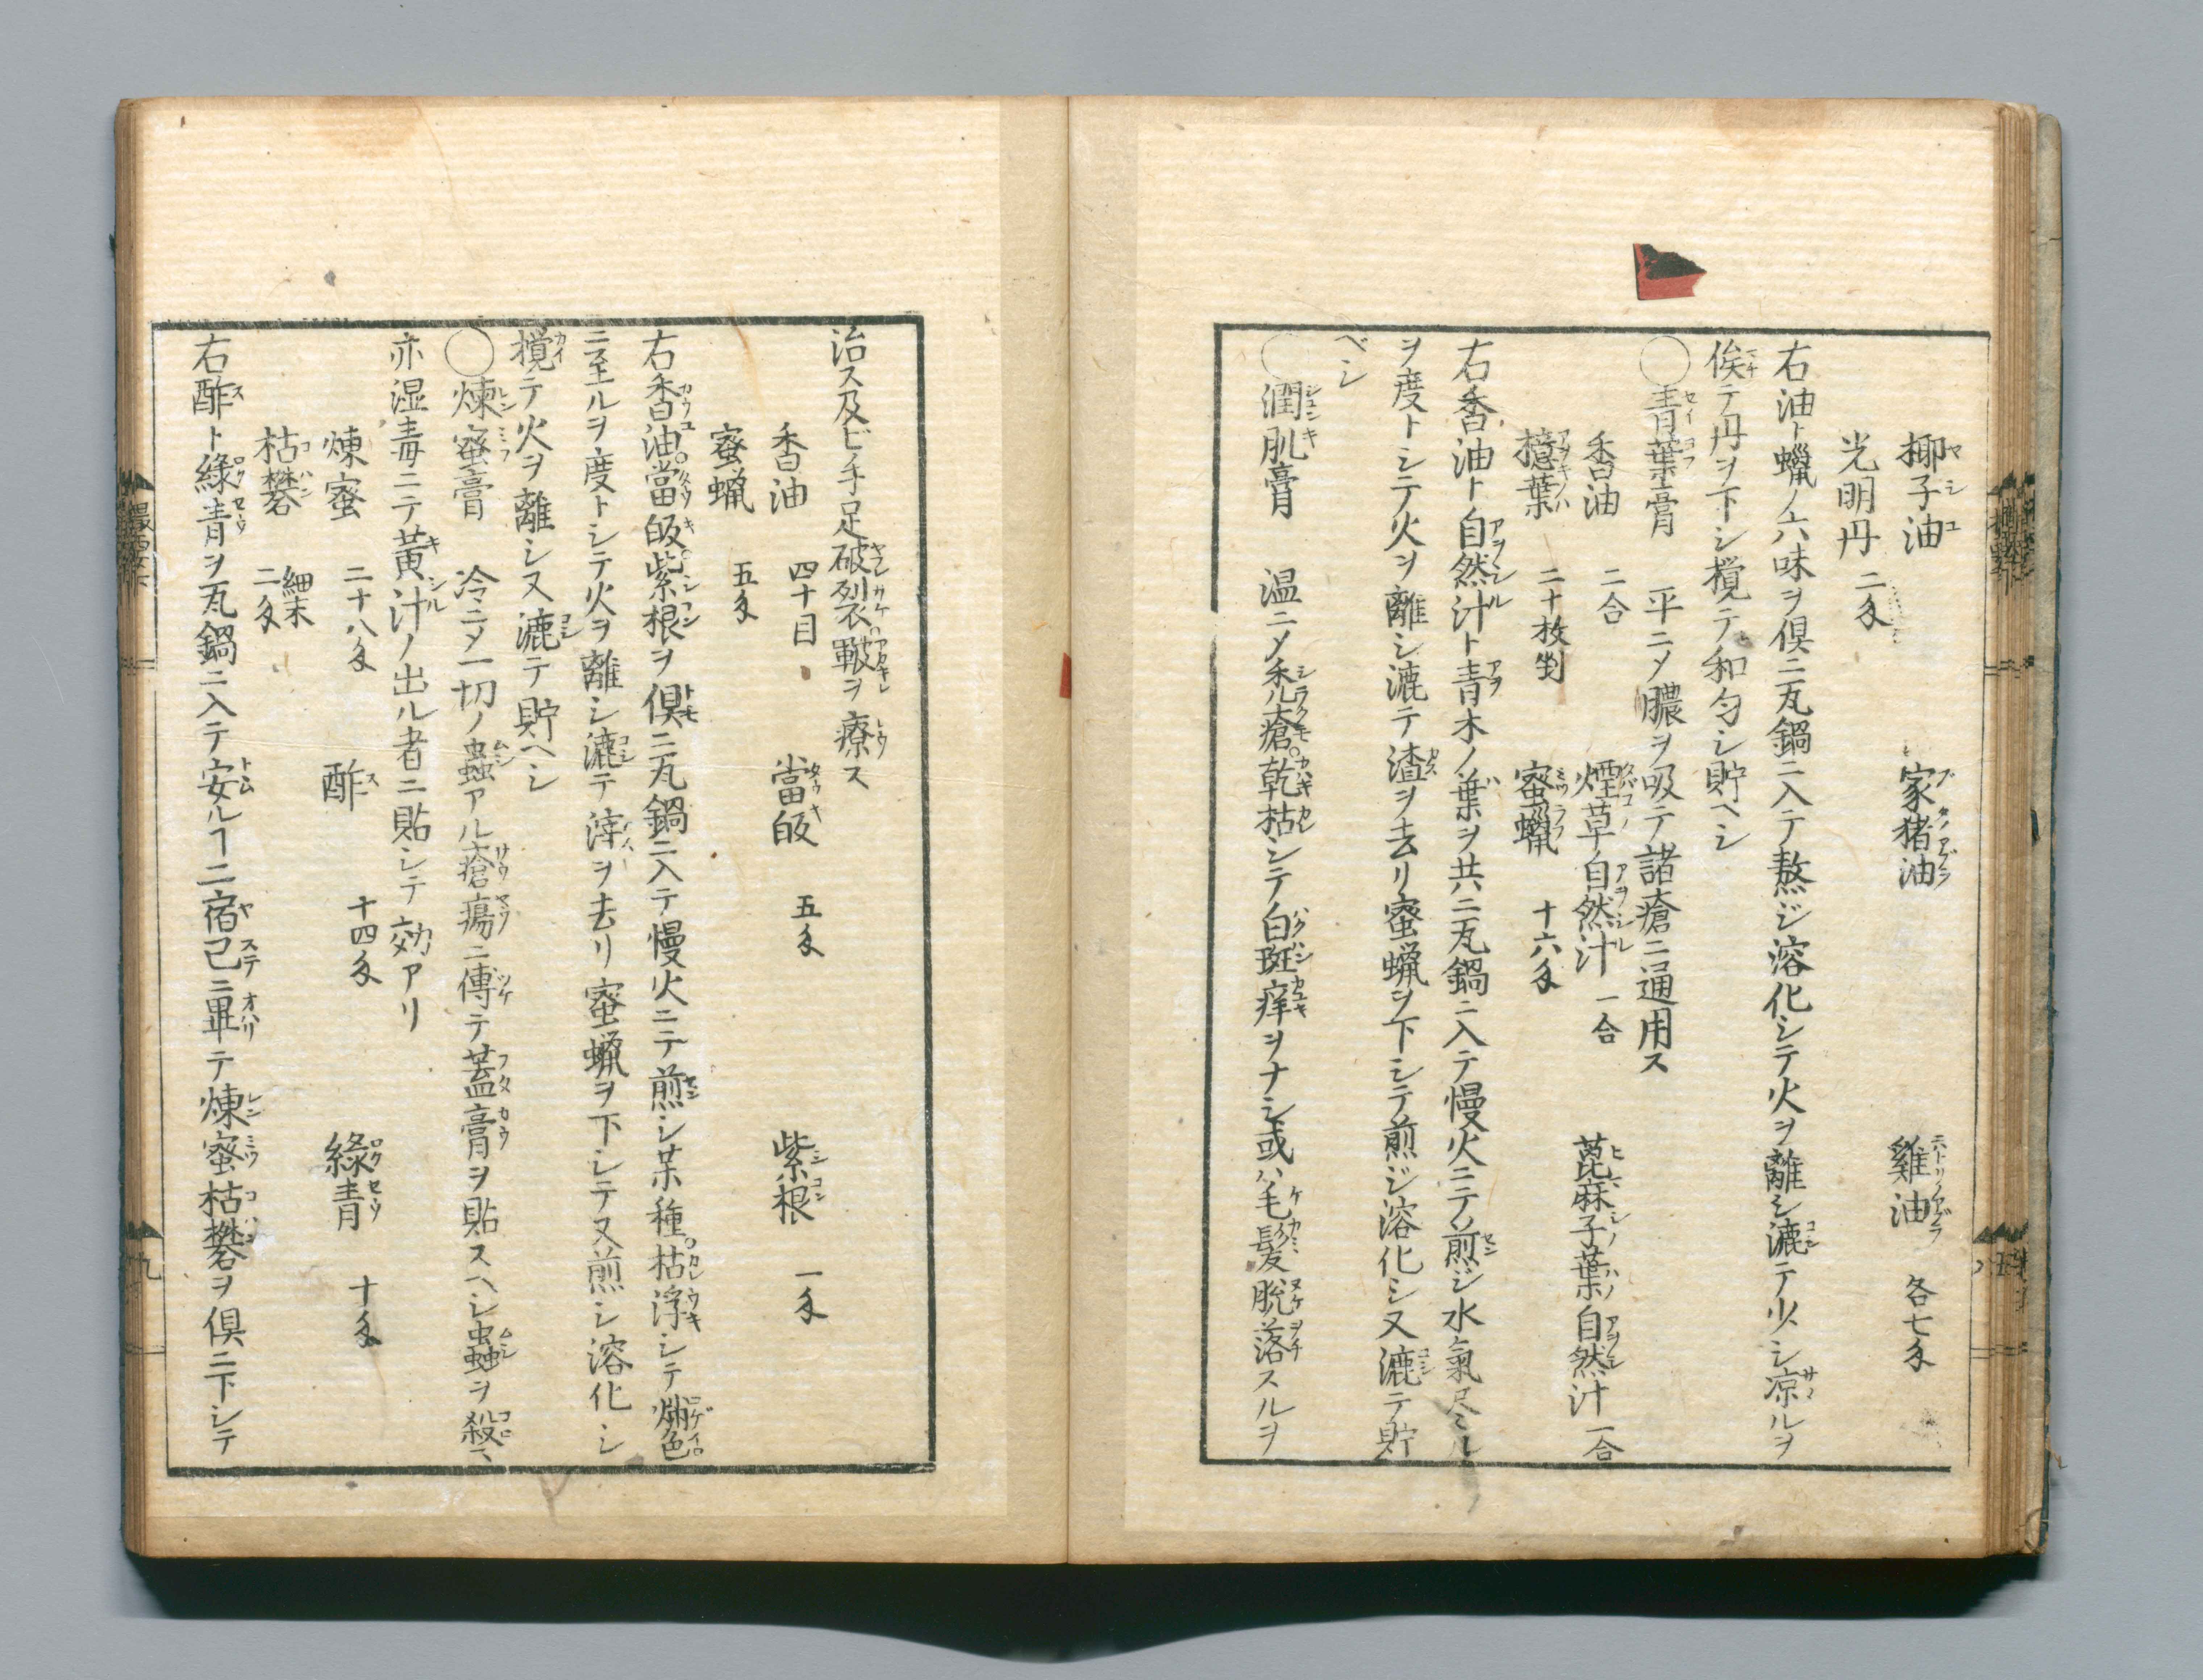 椰子油 家猪油 雞油 各七匁
光明丹 二匁
右油ト蠟ノ六味ヲ倶ニ瓦鍋ニ入テ熬ジ溶化シテ火ヲ離シ漉テ少シ凉ルヲ
俟テ丹ヲ下シ攪テ和匀シ貯ヘシ
○青葉膏 平ニメ膿ヲ吸テ諸瘡ニ通用ス
香油 二合 煙草自然汁 一合 蓖麻子葉自然汁 一合
檍葉 二十枚剉 蜜蠟 十六匁
右香油ト自然汁ト青木ノ葉ヲ共ニ瓦鍋ニ入テ慢火ニテ煎ジ水氣尽ル
ヲ度トシテ火ヲ離シ漉テ渣ヲ去リ蜜蠟ヲ下シテ煎ジ溶化シ又漉テ貯
ベシ
○潤肌膏 温ニメ禿瘡乾枯シテ白斑痒ヲナシ或ハ毛髮脱落スルヲ
治ス及ビ手足破裂皸ヲ療ス
香油 四十目 當皈 五匁 紫根 一匁
蜜蠟 五匁
右香油當皈紫根ヲ倶ニ瓦鍋ニ入テ慢火ニテ煎シ某種枯浮シテ焦色
ニ至ルヲ度トシテ火ヲ離シ漉テ滓ヲ去リ蜜蠟ヲ下シテ又煎シ溶化シ
攪テ火ヲ離シ又漉テ貯ヘシ
○煉蜜膏 冷ニメ一切ノ蟲アル瘡瘍ニ傳テ蓋膏ヲ貼スヘシ蟲ヲ殺ス
亦湿毒ニテ黄汁ノ出ル者ニ貼シテ効アリ
煉蜜 二十八匁 酢 十四匁 綠青 十匁
枯礬 細末 二匁
右酢ト綠青ヲ瓦鍋ニ入テ安ルヿ二宿已ニ畢テ煉蜜枯礬ヲ倶ニ下シテ
九